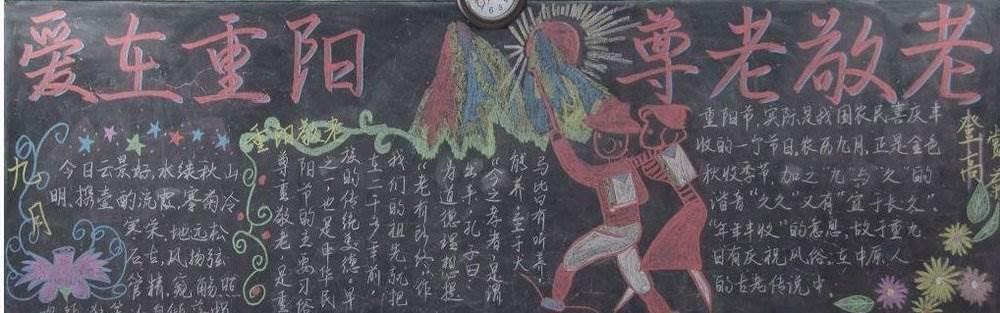 爱在重阳
尊老敬老
九月
今日云景好,水绿秋山
明。携壶酌流霞,搴菊泛
寒荣。地远松
石古,风扬弦
管清。窥觞照
重阳敬老
尊重敬老,是重
阳节的主要习俗
之一,也是中华民
族的传统美德。早
在二千多年前,
我们的祖先就把
“老有所终”作
为道德理想提
出来,孔子曰:
“今之孝者,是谓
能养。至于犬
马皆有所养
重阳节,实际是我国农民喜庆丰
收的一个节日。农历九月,正是金色
秋收季节,加之“九”与“久”的
谐音“久久”又有“宜于长久”、
“年年丰收”的意思,故于重九
日有庆祝风俗。在中原人
的古老传说中
登高